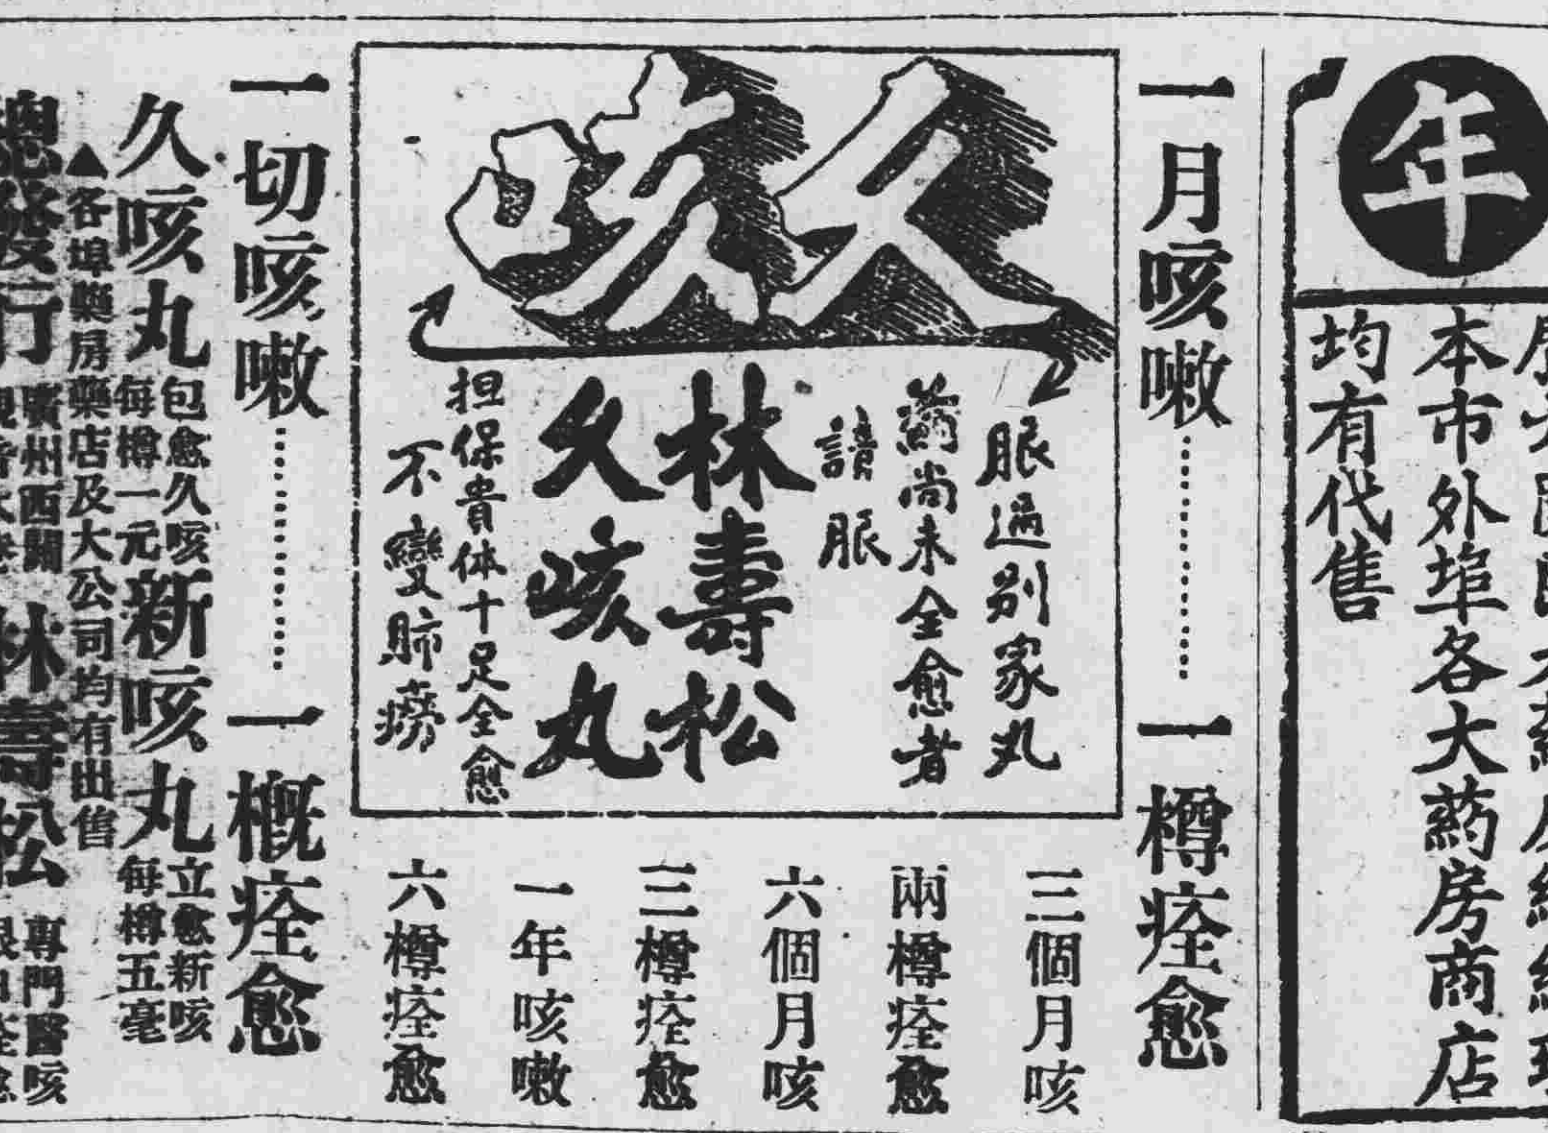 年
本市外埠各大葯房商店
均有代售
一月咳嗽……一樽痊愈
久咳
服過別家丸
葯尚未全愈者
請服
林壽松
久咳丸
担保貴体十足全愈
不變肺癆
三個月咳
兩樽痊愈
六個月咳
三樽痊愈
一年咳嗽
六樽痊愈
一切咳嗽……一概痊愈
久咳丸
包愈久咳
每樽一元
新咳丸
立愈新咳
每樽五毫
▲各埠藥房藥店及大公司均有出售
總發行
廣州西關
林壽松
專門醫咳